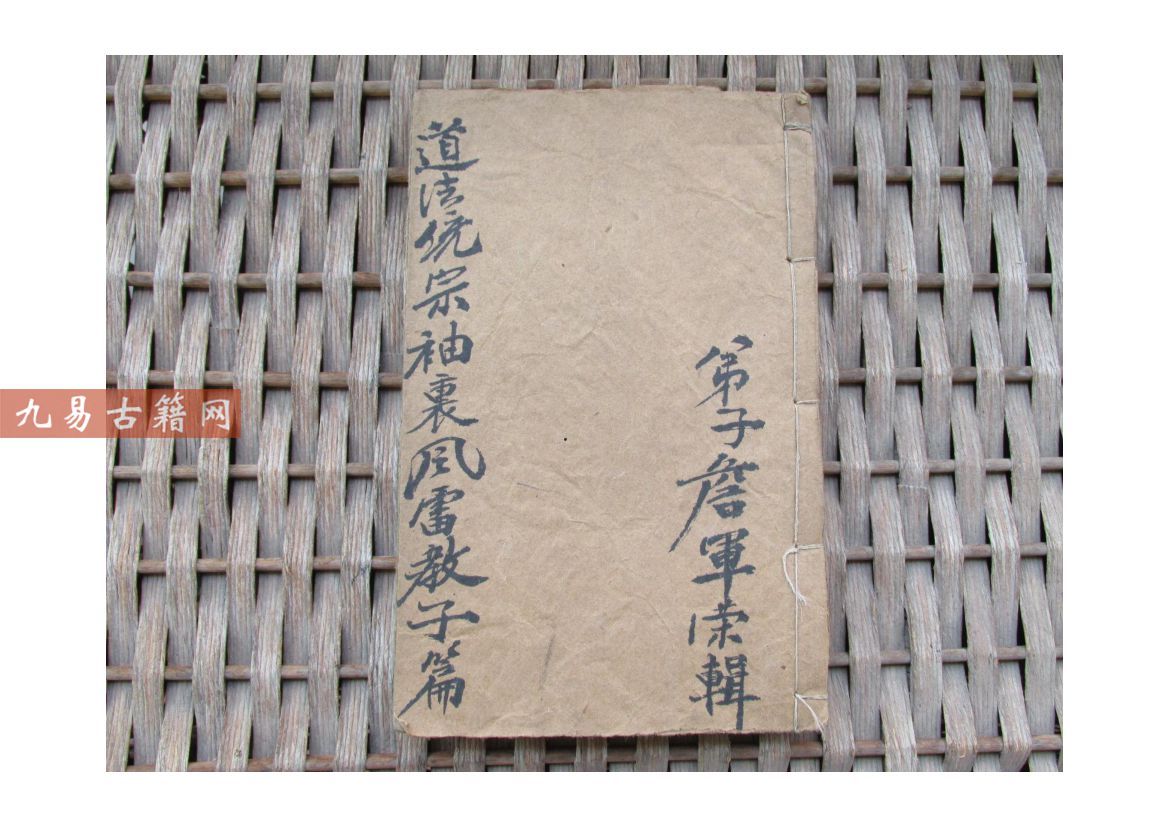 弟子詹軍荣輯
道法統宗袖裏風雷教子篇
九易古籍网